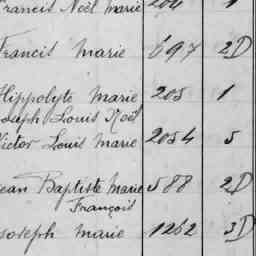 Francis Noël Marie 204 1
Francis Marie 697 2D
Hippolyte Marie 205 1
Joseph Louis Noël
Victor Louis Marie 2054 5
Jean Baptiste Marie 588 2D
François
Joseph Marie 1262 3D